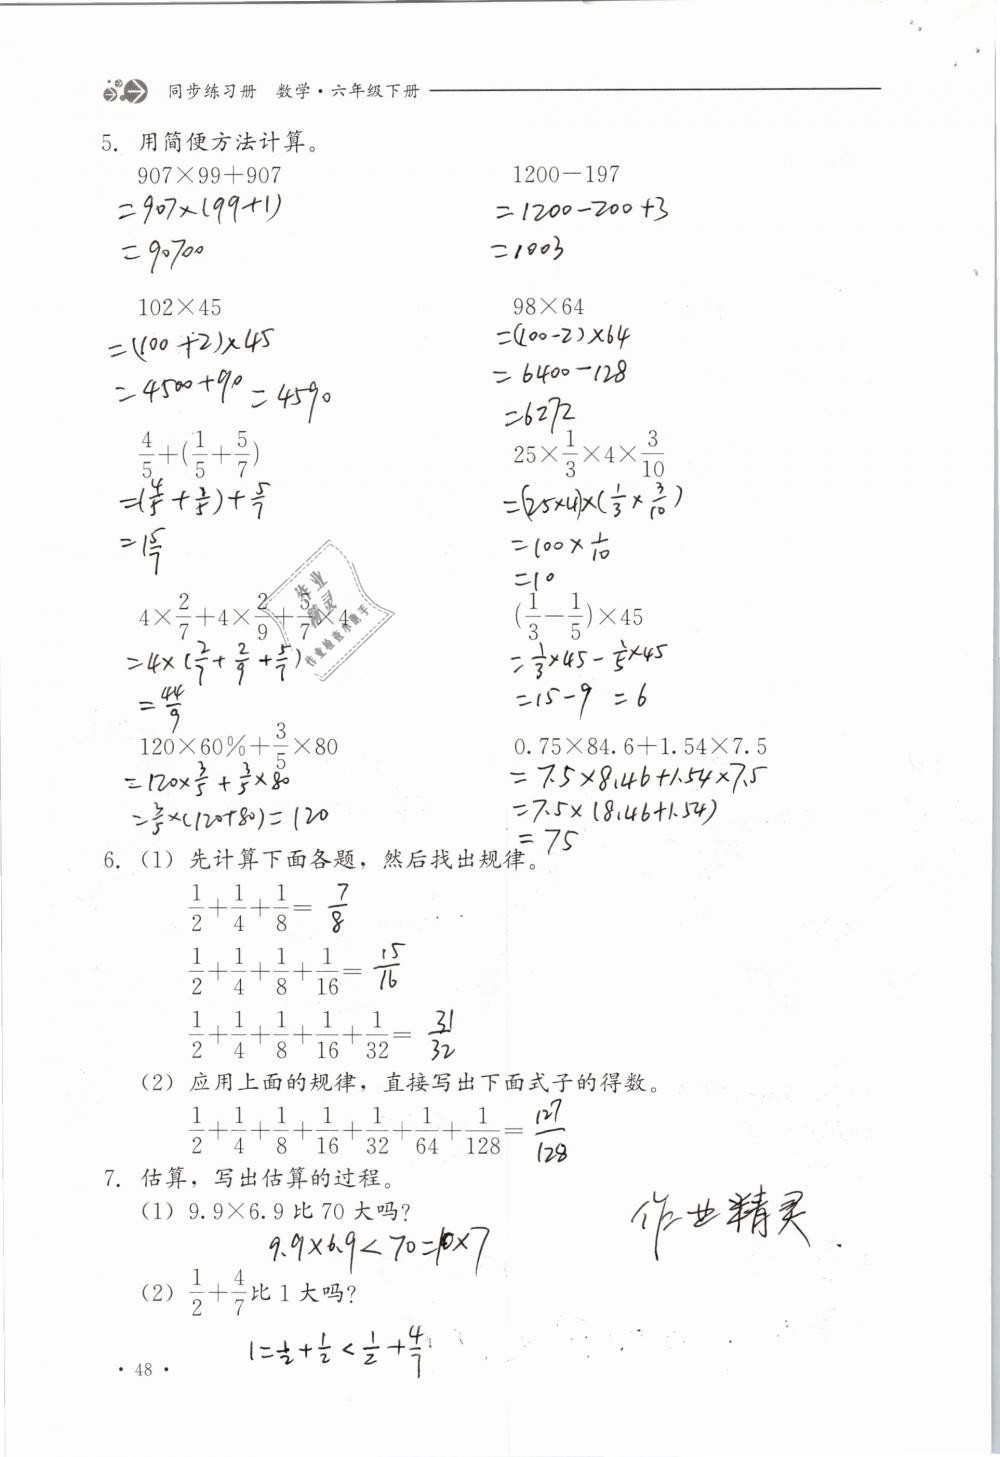 同步练习册 数学·六年级下册
5. 用简便方法计算。
907×99+907
=907×(99+1)
=90700
1200-197
=1200-200+3
=1003
102×45
=(100+2)×45
=4500+90=4590
98×64
=(100-2)×64
=6400-128
=6272
4/5+(1/5+5/7)
=(4/5+1/5)+5/7
=1 5/7
25×1/3×4×3/10
=(25×4)×(1/3×3/10)
=100×1/10
=10
4×2/7+4×2/9+5/7×4
=4×(2/7+2/9+5/7)
=44/9
(1/3-1/5)×45
=1/3×45-1/5×45
=15-9=6
120×60%+3/5×80
=120×3/5+3/5×80
=3/5×(120+80)=120
0.75×84.6+1.54×7.5
=7.5×8.46+1.54×7.5
=7.5×(8.46+1.54)
=75
6. (1) 先计算下面各题，然后找出规律。
1/2+1/4+1/8=7/8
1/2+1/4+1/8+1/16=15/16
1/2+1/4+1/8+1/16+1/32=31/32
(2) 应用上面的规律，直接写出下面式子的得数。
1/2+1/4+1/8+1/16+1/32+1/64+1/128=127/128
7. 估算，写出估算的过程。
(1) 9.9×6.9比70大吗？
9.9×6.9<70=10×7
作业精灵
(2) 1/2+4/7比1大吗？
1=1/2+1/2<1/2+4/7
·48·
作业
精灵
作业检查小助手